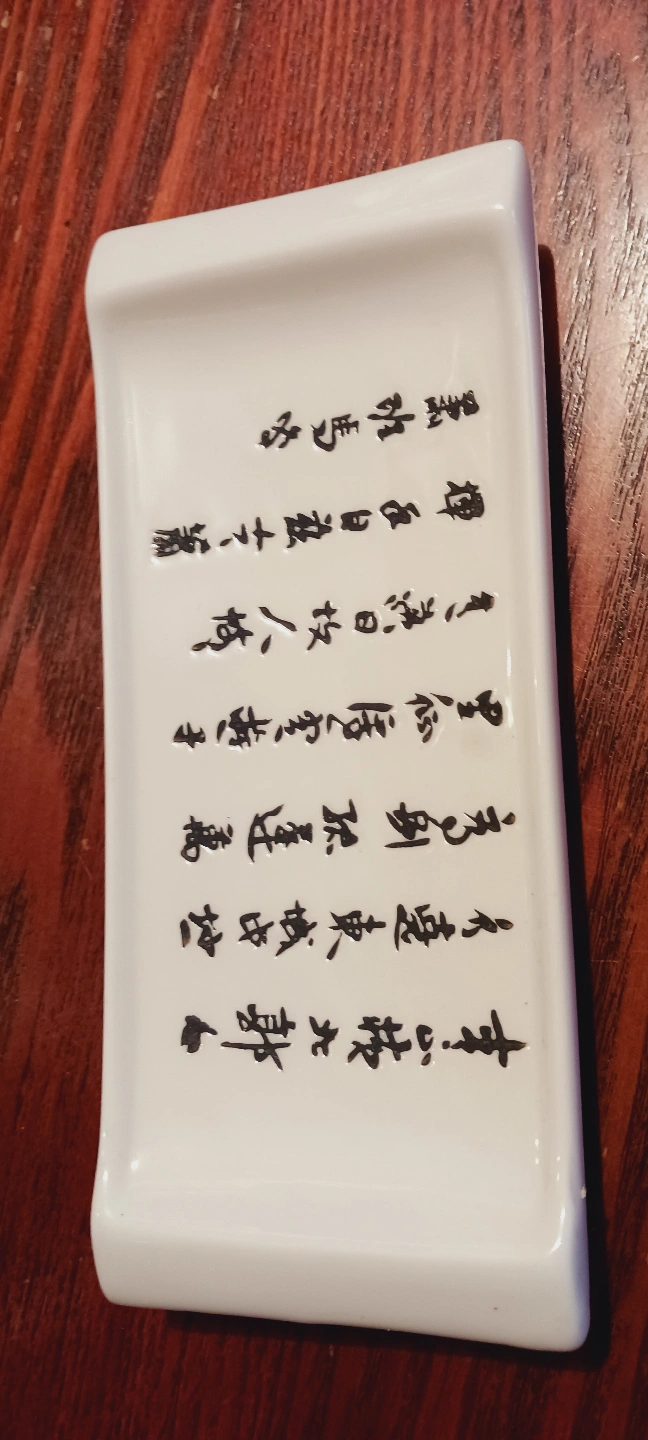 青山橫北郭白
水遶東城此地一
為別孤蓬萬
里征浮雲遊子
意落日故人情
揮手自茲去蕭
蕭班馬鳴